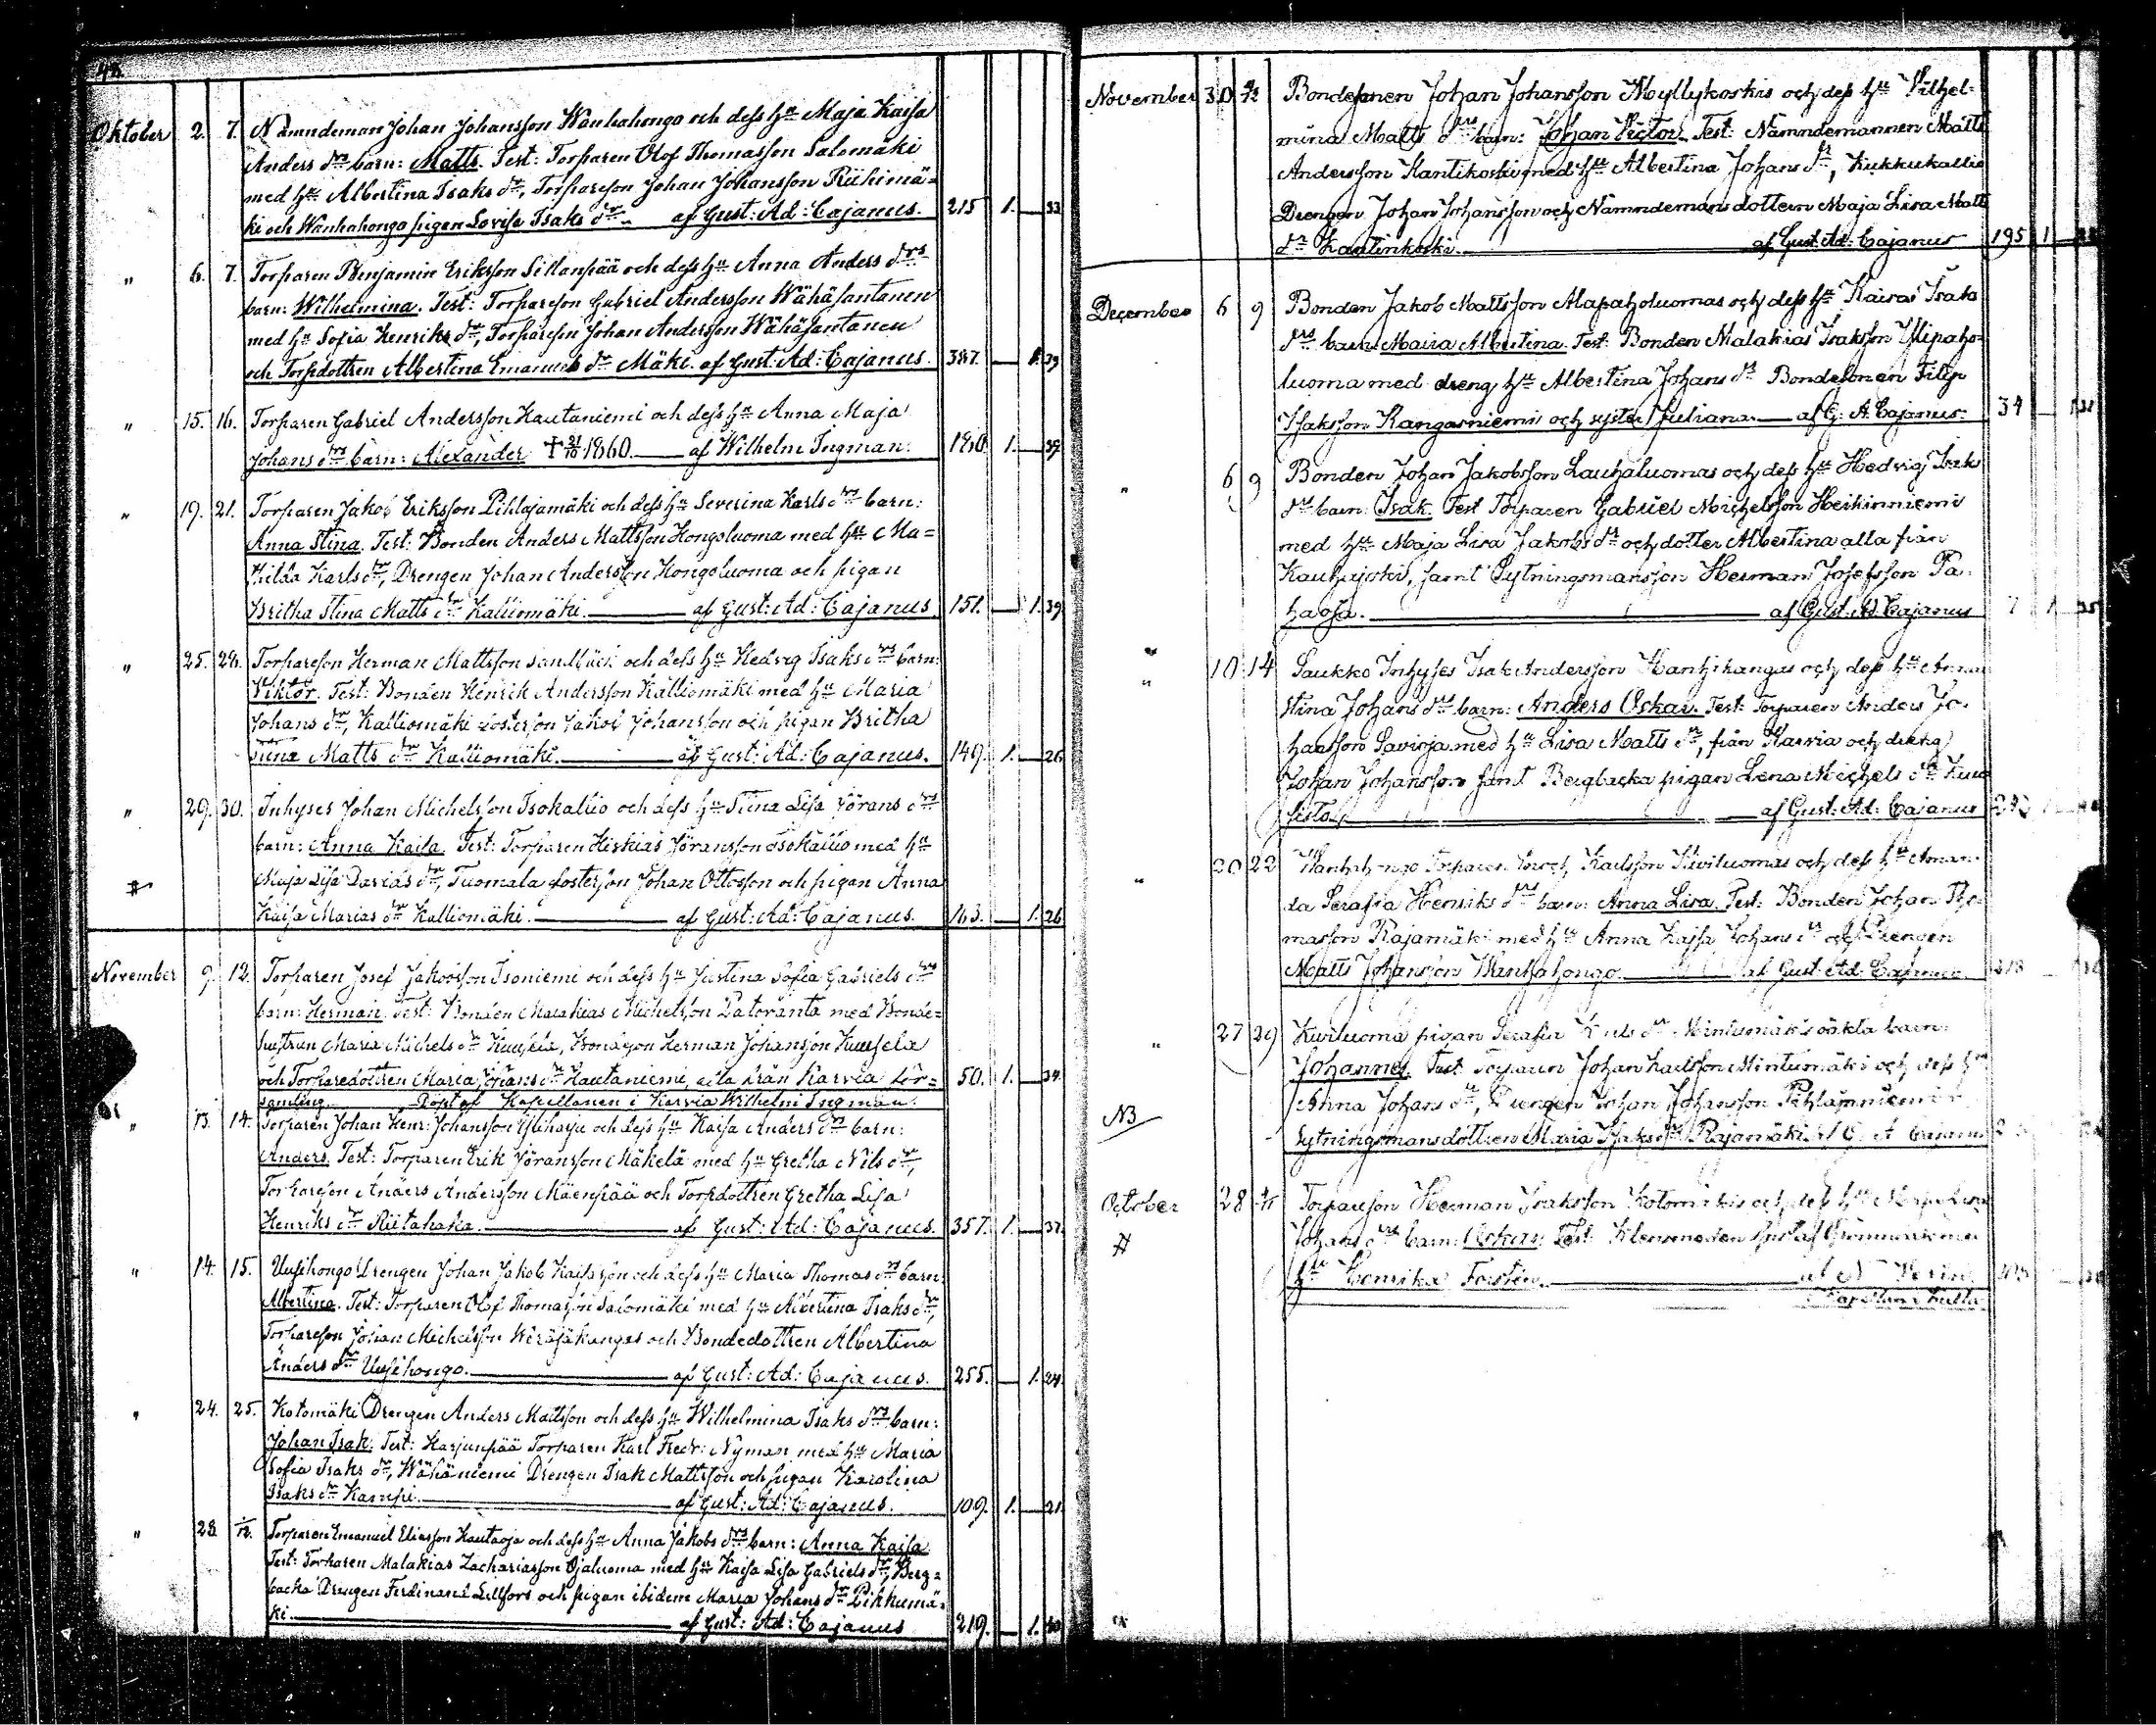 48.
Oktober 2. 7. Nämndeman Johan Johansson Wanhahongo och dess hu Maja Kaisa
Anders drs barn: Matts. Test: Torparen Olof Thomasson Salomäki
med hu Albertina Isaks dr, Torpareson Johan Johansson Riihimä=
ki och Wanhahongo pigan Lovisa Isaks dr. af Gust: Ad: Cajanus. 215 1. 33
" 6. 7. Torparen Benjamin Eriksson Sillanpää och dess hu Anna Anders drs
barn: Wilhelmina. Test: Torpareson Gabriel Andersson Wähäsantanen
med hu Sofia Henriks dr, Torpareson Johan Andersson Wähäsantanen
och Torpdottren Albertina Emanuels dr Mäki. af Gust: Ad: Cajanus. 387. 1. 39
" 15. 16. Torparen Gabriel Andersson Kautaniemi och dess hu Anna Maja
Johans drs barn: Alexander † 21/10 1860. af Wilhelm Ingman. 1. 37
" 19. 21. Torparen Jakob Eriksson Pihlajamäki och dess hu Severina Karls drs barn:
Anna Stina. Test: Bonden Anders Mattsson Hongoluoma med hu Ma=
thilda Karls dr, Drengen Johan Andersson Hongoluoma och pigan
Britha Stina Matts dr Kalliomäki. af Gust: Ad: Cajanus. 151. 1. 39
" 25. 28. Torpareson Herman Mattsson Sandbäck och dess hu Hedvig Isaks drs barn:
Viktor. Test: Bonden Henrik Andersson Kalliomäki med hu Maria
Johans dr, Kalliomäki Fosterson Jakob Johansson och pigan Britha
Stina Matts dr Kalliomäki. af Gust: Ad: Cajanus. 149. 1. 26
" 29. 30. Inhyses Johan Michelsson Isokallio och dess hu Stina Lisa Jörans drs
barn: Anna Kaisa. Test: Torparen Hiskias Jöransson Isokallio med hu
# Maja Lisa Darias dr, Tuomala Fosterson Johan Ottosson och pigan Anna
Kaisa Marias dr Kalliomäki. af Gust: Ad: Cajanus. 163. 1. 26
November 9. 12. Torparen Josef Jakobsson Isoniemi och dess hu Justina Sofia Gabriels drs
barn: Herman. Test: Bonden Malakias Michelsson Patoranta med Bonde=
hustrun Maria Michels dr Kuusela, Bondeson Herman Johansson Kuusela
och Torparedottren Maria Johans dr Hautaniemi, alla från Karvia för=
samling. Döpt af Kapellanen i Karvia Wilhelm Ingman. 50. 1. 34.
" 13. 14. Torparen Johan Henr: Johansson Yliharju och dess hu Kaisa Anders drs barn:
Anders. Test: Torparen Erik Jöransson Mäkelä med hu Gretha Nils dr,
Torpareson Anders Andersson Mäenpää och Torpdottren Gretha Lisa
Henriks dr Riitahaka. af Gust: Ad: Cajanus. 357. 1. 37.
" 14. 15. Uusihongo Drengen Johan Jakob Kaisason och dess hu Maria Thomas drs barn:
Albertina. Test: Torparen Olof Thomasson Salomäki med hu Albertina Isaks dr,
Torpareson Johan Michelsson Wiräjäkangas och Bondedottren Albertina
Anders dr Uusihongo. af Gust: Ad: Cajanus. 255. 1. 24.
" 24. 25. Kotomäki Drengen Anders Mattsson och dess hu Wilhelmina Isaks drs barn:
Johan Isak. Test: Karjunpää Torparen Karl Fredr: Nyman med hu Maria
Sofia Isaks dr, Wähäniemi Drengen Isak Mattsson och pigan Karolina
Isaks dr Kampi. af Gust: Ad: Cajanus. 109. 1. 21.
" 28. Torparen Emanuel Eliasson Kautaoja och dess hu Anna Jakobs drs barn: Anna Kaisa.
Test: Torparen Malakias Zachariasson Ojaluoma med hu Kaisa Lisa Gabriels dr, Berg=
backa Drengen Ferdinand Lillfors och pigan ibidem Maria Johans dr Pikkumä=
ki. af Gust: Ad: Cajanus 219. 1.
November 30 Bondesonen Johan Johansson Myllykoskis och dess hu Vilhel-
mina Matts drs barn: Johan Victor. Test: Nämndemannen Matts
Andersson Kantikoski med hu Albertina Johans dr, Kukkukallio
Drengen Johan Johansson och Nämndemansdottern Maja Lisa Matts
dr Kantinkoski. af Gust. Ad. Cajanus 195 1
December 6 9 Bonden Jakob Mattsson Alapaholuomas och dess hu Isaks
drs barn: Maria Albertina. Test: Bonden Malakias Isaksson Ylipaho-
luoma med dreng hu Albertina Johans dr Bondesonen Filip
Isaksson Kangasniemi och syster Juliana. af G. A. Cajanus. 34
" 6 9 Bonden Johan Jakobsson Lauhaluomas och dess hu Hedvig Isaks
drs barn: Isak. Test Torparen Gabriel Michelsson Heikinniemi
med hu Maja Lisa Jakobs dr och dotter Albertina alla från
Kauhajoki, samt Sytningsmansson Herman Josefsson Pa-
haoja. af Gust. Ad. Cajanus 7 1
" 10 14 Saukko Inhyses Isak Andersson Hanhikangas och dess hu Anna
Stina Johans drs barn: Anders Oskar. Test: Torparen Anders Jo-
hansson Savioja med hu Lisa Matts dr, från Karvia och dreng
Johan Johansson samt Bergbacka pigan Lena Michels dr Kuu
sisto. af Gust: Ad: Cajanus
" 20 22 Wanhahongo Torparen Karlsson Kiviluomas och dess hu Aman-
da Serafia Henriks drs barn: Anna Lisa. Test: Bonden Johan Tho-
masson Rajamäki med hu Anna Kajsa Johans dr och Drengen
Matts Johansson Wanhahongo. af Gust: Ad: Cajanus
" 27 29 Kiviluoma pigan Serafia dr Mintumäkis oäkta barn:
Johannes. Test: Torparen Johan Karlsson Mintumäki och dess hu
NB Anna Johans dr, Drengen Johan Johansson Pihlajaniemi
Sytningsmansdottren Maria Isaks dr Rajamäki. af G. A Cajanus
October 28 Torpareson Herman Isaksson Kotomäkis och dess hu
# Johans drs barn: Oskar. Test: Klensmeden Gustaf Grönmark med
hu Henrika Forstén. af
Kapellan